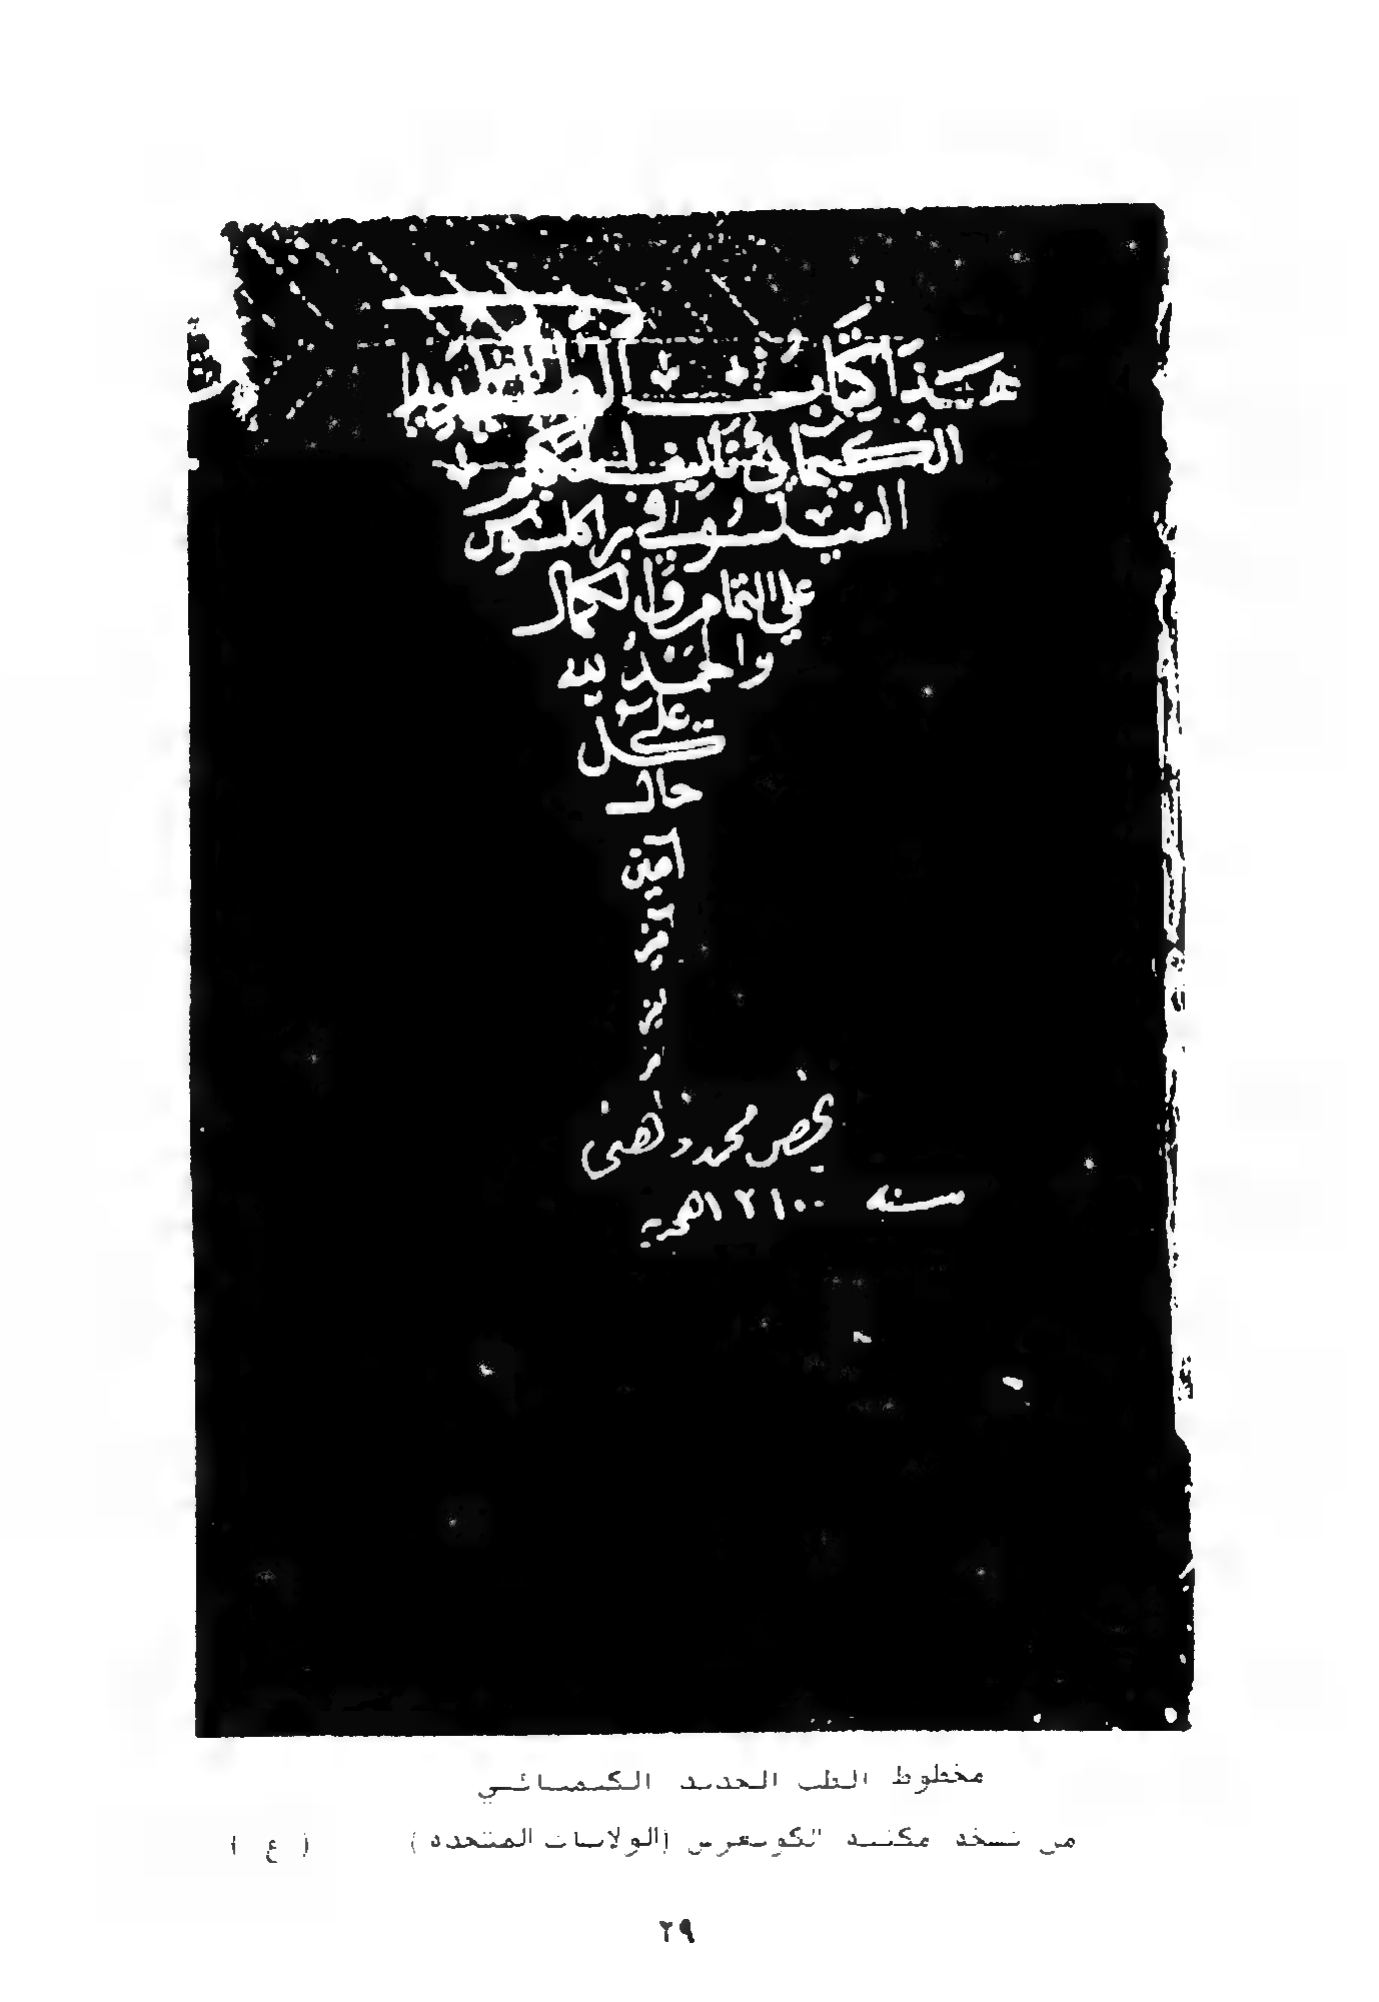 هذا كتاب الطب الجديد
الكيميائي تأليف الحكيم
الفيلسوفي براكلسوس
على التمام والكمال
والحمد لله
على
كل
حال
آمين
بخط محمد
سنه هجريه
مخطوط الطب الجديد الكيميائي
من نسخة مكتبة الكونغرس (الولايات المتحدة) ( ع )
٢٩